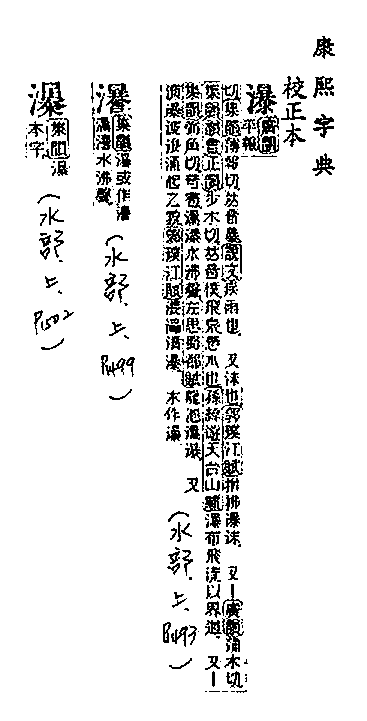 康熙字典
校正本
瀑 廣韻平報
切集韻薄報切𠀤音暴說文疾雨也 又沫也郭璞江賦拊拂瀑沫 又一廣韻蒲木切
集韻韻會正韻步木切𠀤音僕飛泉懸水也孫綽遊天台山賦瀑布飛流以界道 又一
集韻弼角切音雹瀑水沸聲左思蜀都賦龍池瀑瀑 又
波瀑波湧起之貌郭璞江賦 本作瀑
(水部、上、P1493)
集韻瀑或作
水沸聲
(水部、上、P1499)
集韻瀑
本字
(水部、上、P1502)